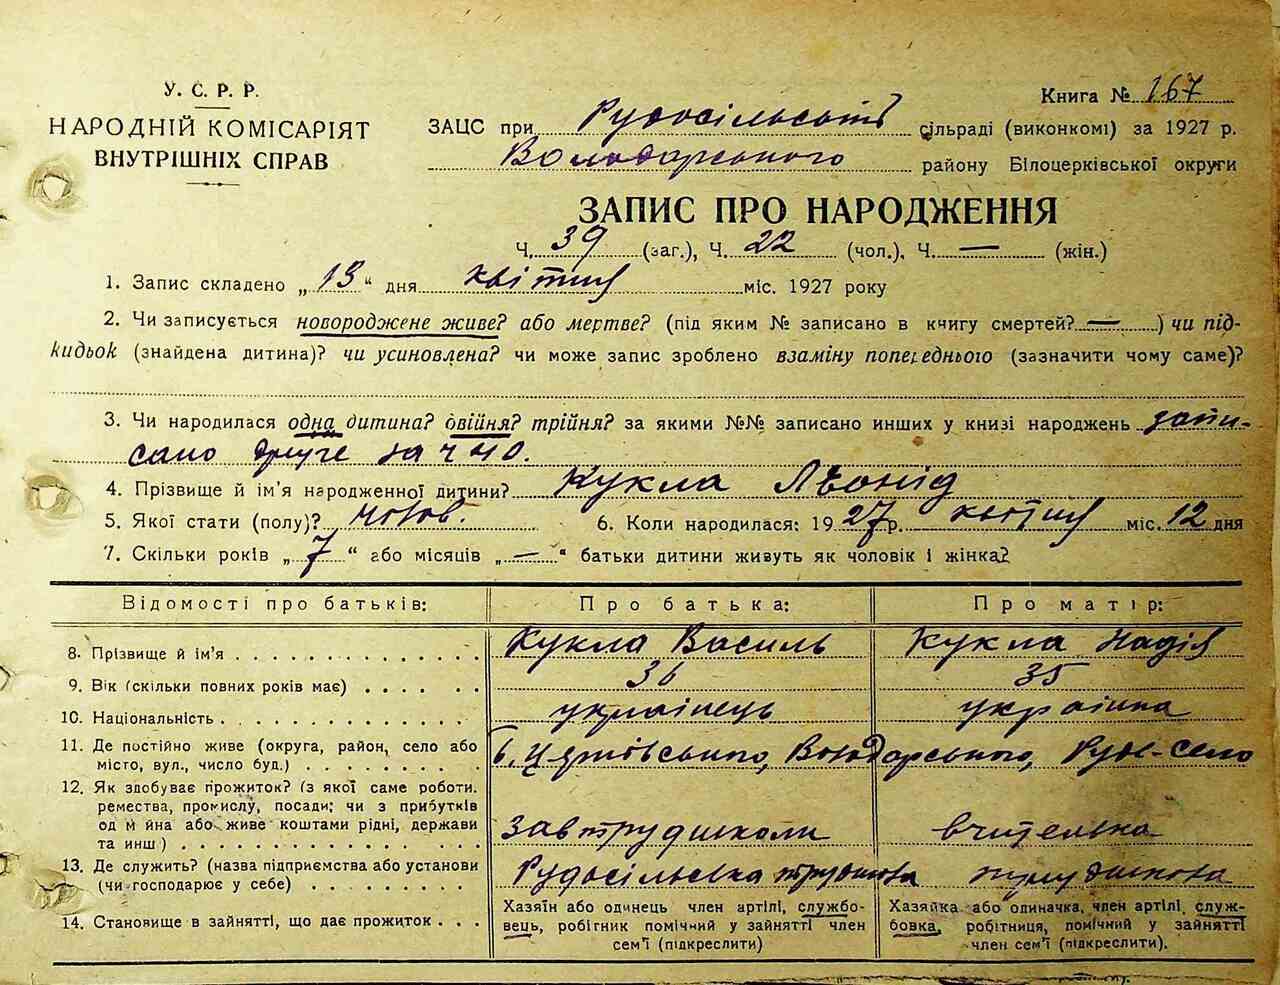 У. С. Р. Р.
НАРОДНІЙ КОМІСАРІЯТ
ВНУТРІШНІХ СПРАВ
Книга № 167
ЗАЦС при Рудосільській сільраді (виконкомі) за 1927 р.
Володарського району Білоцерківської округи
ЗАПИС ПРО НАРОДЖЕННЯ
Ч. 39 (заг.), Ч. 22 (чол.), Ч. — (жін.)
1. Запис складено „ 13 “ дня квітня міс. 1927 року
2. Чи записується новороджене живе? або мертве? (під яким № записано в книгу смертей? — ) чи під-
кидьок (знайдена дитина)? чи усиновлена? чи може запис зроблено взаміну попереднього (зазначити чому саме)?
3. Чи народилася одна дитина? двійня? трійня? за якими №№ записано инших у книзі народжень запи-
сано друге за ч 40.
4. Прізвище й ім'я народженної дитини? Кукла Леонід
5. Якої стати (полу)? чолов. 6. Коли народилася: 1927 р. квітня міс. 12 дня
7. Скільки років „ 7 “ або місяців „ — “ батьки дитини живуть як чоловік і жінка?
Відомості про батьків: Про батька: Про матір:
8. Прізвище й ім'я Кукла Василь Кукла Надія
9. Вік (скільки повних років має) 36 35
10. Національність українець українка
11. Де постійно живе (округа, район, село або
місто, вул., число буд.) Б. Церківського, Володарського, Руде-село
12. Як здобуває прожиток? (з якої саме роботи.
ремества, промислу, посади; чи з прибутків
од майна або живе коштами рідні, держави
та инш) завтрудшколи вчителька
13. Де служить? (назва підприємства або установи
(чи господарює у себе) Рудосільська трудшкола трудшкола
14. Становище в зайнятті, що дає прожиток
Хазяїн або одинець член артілі, службо-
вець, робігник помічний у зайнятті член
сем'ї (підкреслити)
Хазяйка або одиначка, член артілі, служ-
бовка, робітниця, помічний у зайнятті
член сем'ї (підкреслити).